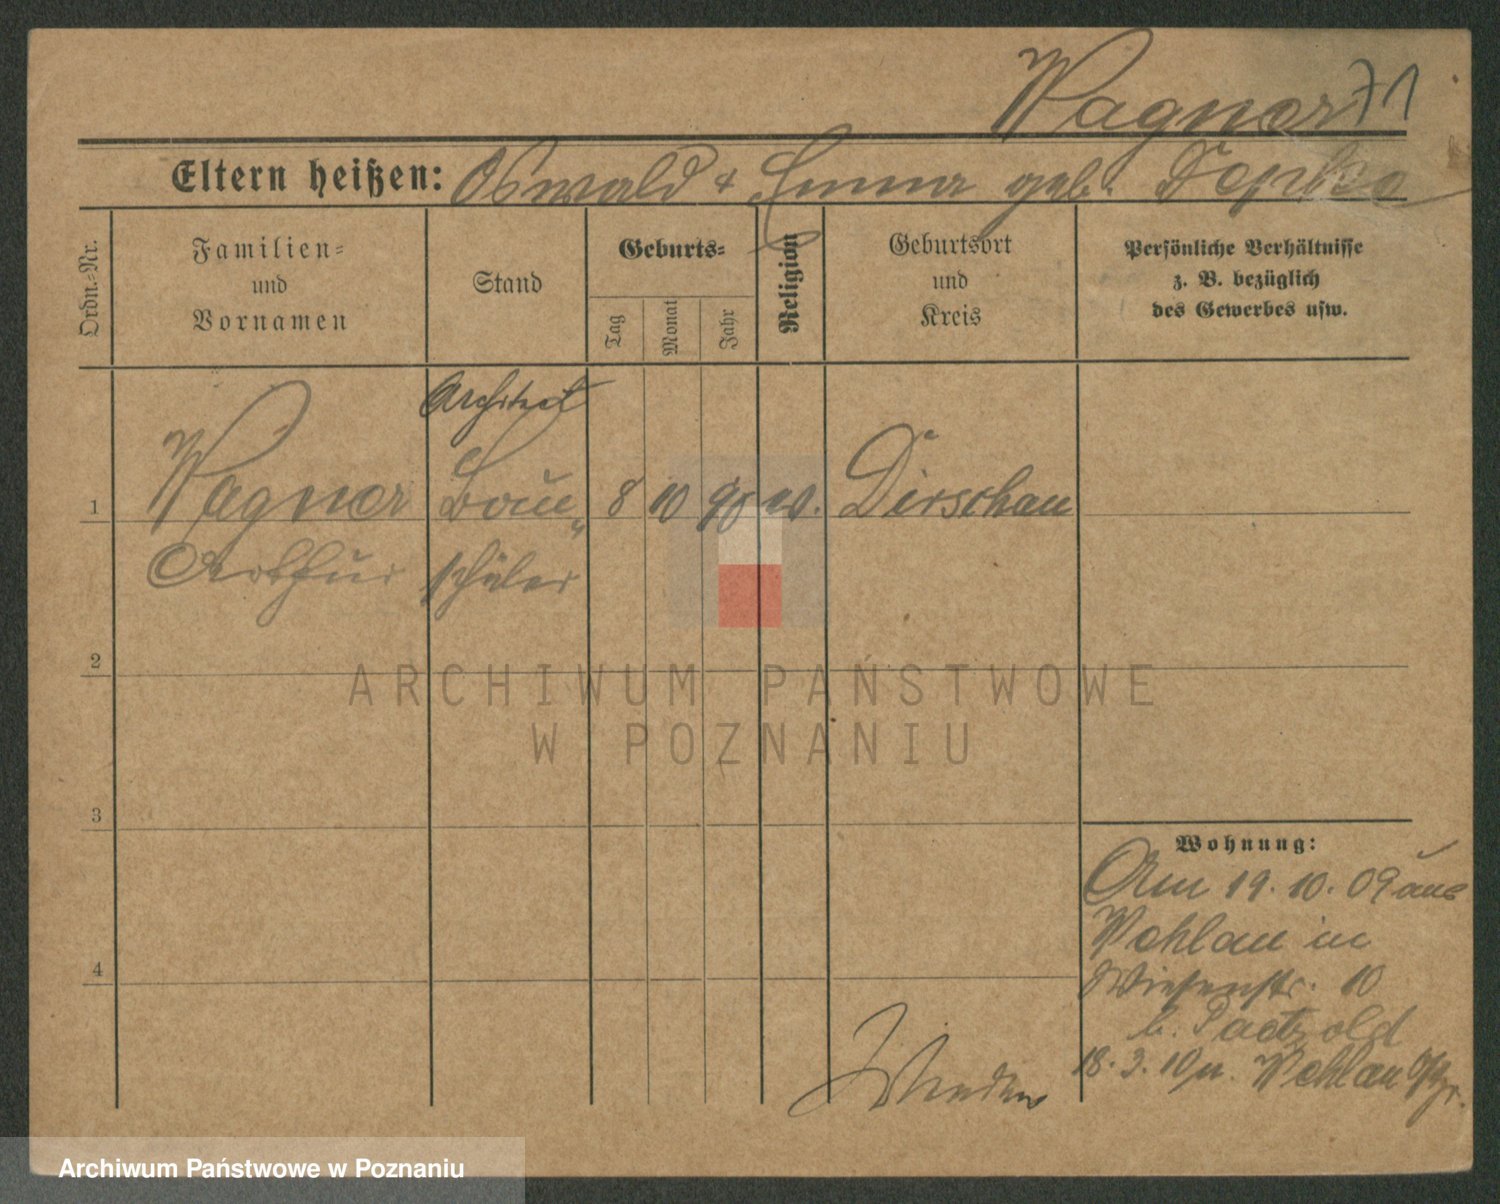 Wagner 71
Eltern heißen: Oswald & Emma geb. Topka
Ordn.-Nr.
Familien-
und
Vornamen
Stand
Geburts-
Tag
Monat
Jahr
Religion
Geburtsort
und
Kreis
Persönliche Verhältnisse
z. B. bezüglich
des Gewerbes usw.
Architect
1 Wagner Bau- 8 10 90 Dirschau
Arthur schüler
2
3
4
Wohnung:
Am 19. 10. 09 aus
Wohlau in
Wiesenstr. 10
b. Paetzold
18. 3. 10 n. Wohlau
ARCHIWUM PAŃSTWOWE
W POZNANIU
Archiwum Państwowe w Poznaniu